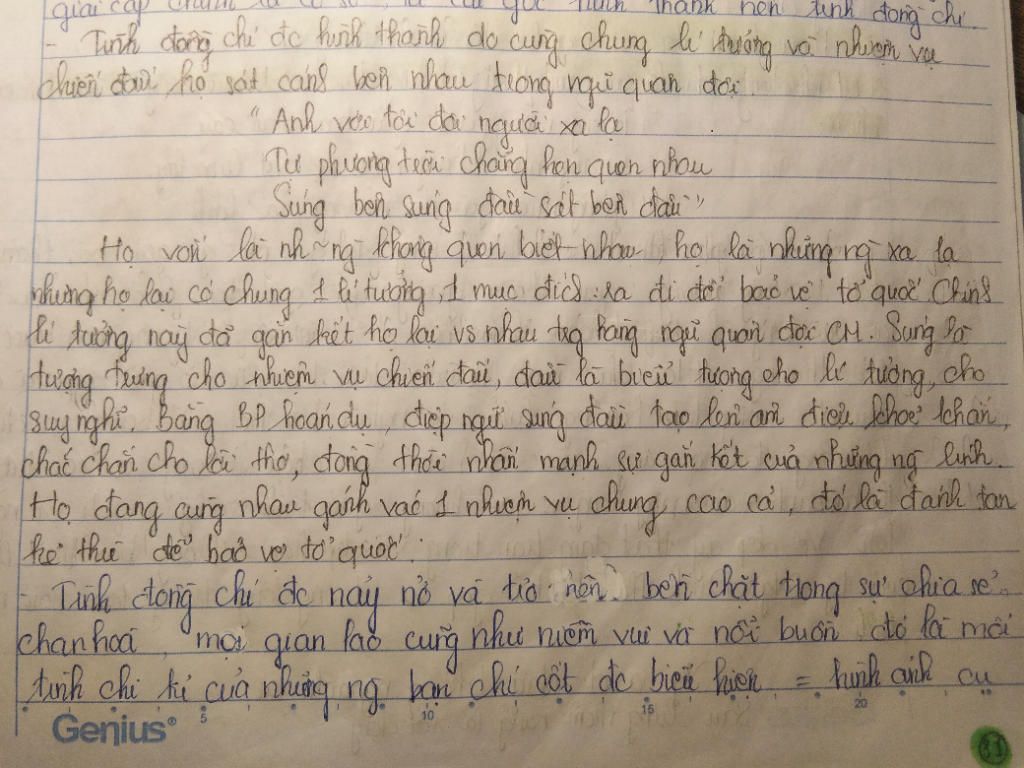 giai cấp chính là cơ sở, là cái gốc hình thành nên tình đồng chí
- Tình đồng chí đc hình thành do cùng chung lí tưởng và nhiệm vụ
chiến đấu, họ sát cánh bên nhau trong ngũ quân đội.
"Anh với tôi đôi người xa lạ
Tự phương trời chẳng hẹn quen nhau
Súng bên súng đầu sát bên đầu"
Họ vốn là nh~ng không quen biết nhau, họ là những ng xa lạ
nhưng họ lại có chung 1 lí tưởng, 1 mục đích: ra đi để bảo vệ tổ quốc. Chính
lí tưởng này đã gắn kết họ lại vs nhau trg hàng ngũ quân đội CM. Súng là
tượng trưng cho nhiệm vụ chiến đấu, đầu là biểu tượng cho lí tưởng, cho
suy nghĩ. Bằng BP hoán dụ, điệp ngữ súng đầu tạo lên âm điệu khoẻ khắn,
chắc chắn cho lời thơ, đồng thời nhấn mạnh sự gắn kết của những ng lính.
Họ đang cùng nhau gánh vác 1 nhiệm vụ chung cao cả, đó là đánh tan
kẻ thù để bảo vệ tổ quốc.
- Tình đồng chí đc nảy nở và trở nên bền chặt trong sự chia sẻ
chan hoà, mọi gian lao cũng như niềm vui và nỗi buồn đó là mối
tình chi kỉ của những ng bạn chí cốt đc biểu hiện = hình ảnh cụ
5 10 15 20
Genius®